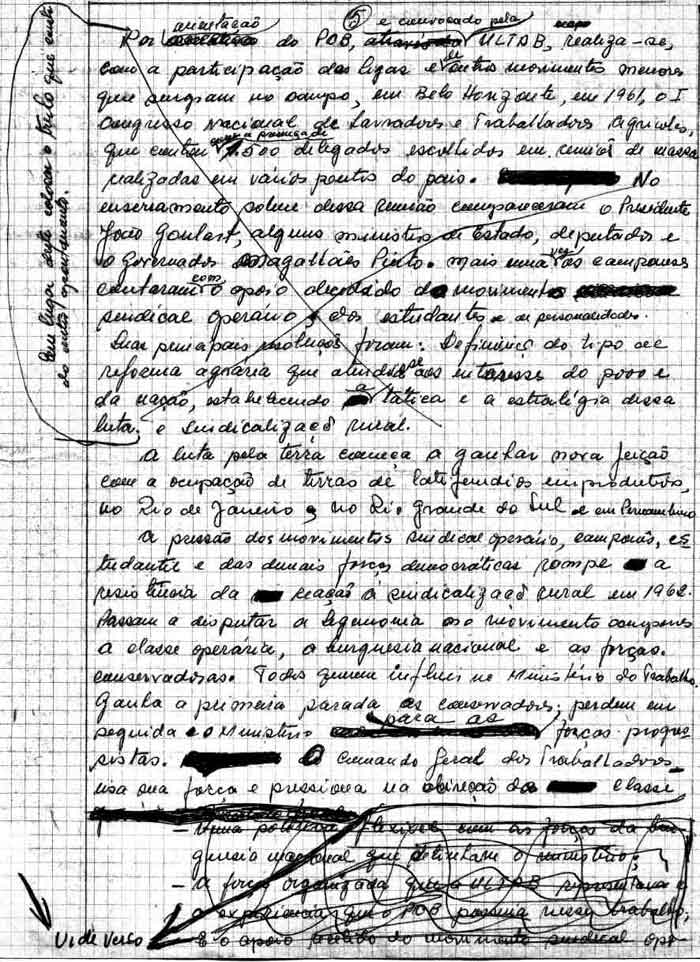 ⑤
orientação e convocado pela
Por do PCB, ULTAB, realiza-se,
com a participação das ligas e de outros movimentos menores
que surgiam no campo, em Belo Horizonte, em 1961, o I
Congresso Nacional de Lavradores e Trabalhadores Agrícolas,
com a presença de
que contou 1.500 delegados escolhidos em reuniões de massa
realizadas em vários pontos do país. No
encerramento solene dessa reunião compareceram o Presidente
João Goulart, alguns ministros de Estado, deputados e
o Governador Magalhães Pinto. Mais uma vez os camponeses
contaram com o apoio decidido do movimento
sindical operário, dos estudantes e de personalidades.
Suas principais resoluções foram: Definições do tipo de
reforma agrária que atendesse aos interesses do povo e
da nação, estabelecendo a tática e a estratégia dessa
luta. e sindicalização rural.
A luta pela terra começa a ganhar nova feição
com a ocupação de terras de latifundios improdutivos,
no Rio de Janeiro, no Rio Grande do Sul e em Pernambuco
A pressão dos movimentos sindical operário, camponês, es-
tudantil e das demais forças democráticas rompe a
resistência da reação à sindicalização rural em 1962.
Passam a disputar a hegemonia no movimento camponês
a classe operária, a burguesia nacional e as forças
conservadoras. Todos querem influir no Ministério do Trabalho.
Ganha a primeira parada os conservadores; perdem em
seguida o Ministério para as forças progres-
sistas. O Comando Geral dos Trabalhadores
usa sua força e pressiona na direção da classe
- Uma política flexível com as forças da bur-
guesia nacional que detinham o ministério;
- A força organizada que a ULTAB representava e
a experiência que o PCB possuia nesse trabalho;
- E o apoio recebido do movimento sindical ope-
Vide verso
Em lugar deste colocar o título que está
do outro apontamento.